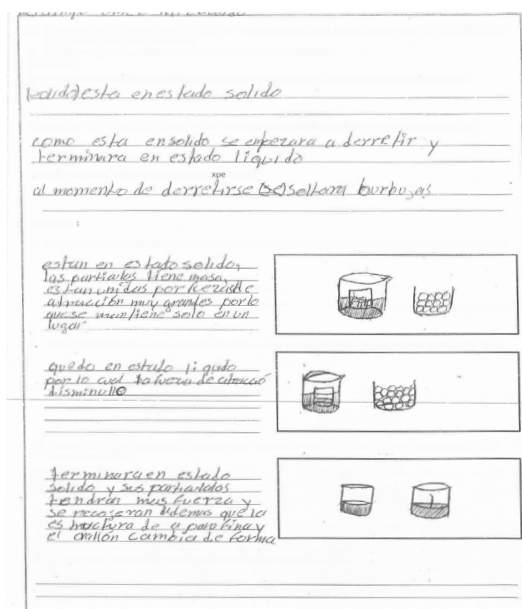 (solido) esta en estado solido
como esta en solido se enpezara a derretir y
terminara en estado líquido
xpe
al momento de derretirse (se) soltara burbujas
estan en estado solido,
las particulas tiene masa,
estan unidas por fuerzas de
atracción muy grandes por lo
que se mantiene solo en un
lugar
quedo en estado liquido
por lo cual la fuerza de atracció
disminullo
terminara en estado
solido y sus particulas
tendran mas fuerza y
se recogeran ademas que la
estructura de a parafina y
el crallón cambia de forma